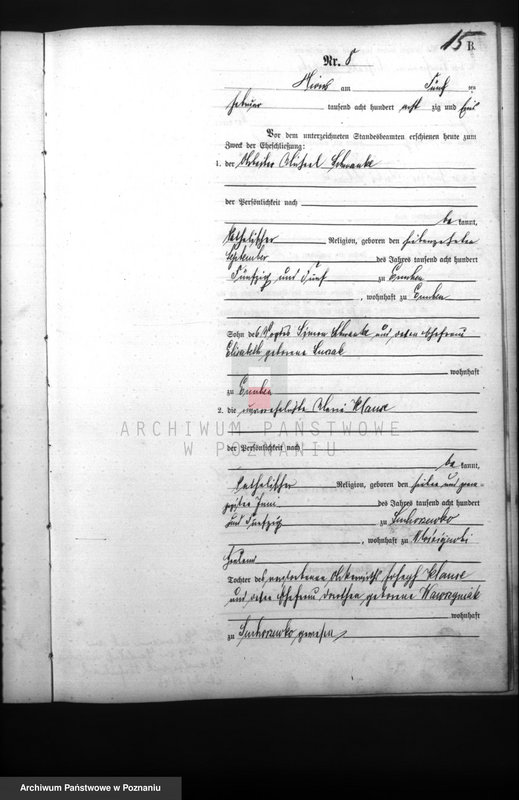 15 B.
Nr. 8
am Fünf ten
Februar tausend acht hundert acht zig und Eins
Vor dem unterzeichneten Standesbeamten erschienen heute zum
Zweck der Eheschließung:
1. der Arbeiter
der Persönlichkeit nach
be kannt,
katholischer Religion, geboren den siebenzehnten
September des Jahres tausend acht hundert
Fünfzig und Fünf zu
, wohnhaft zu
Sohn des Simon und dessen Ehefrau
Elisabeth geborene
wohnhaft
zu
2. die unverehelichte Klause
ARCHIWUM PAŃSTWOWE
W POZNANIU
der Persönlichkeit nach
be kannt,
katholischer Religion, geboren den sieben und zwan-
zigsten Juni des Jahres tausend acht hundert
und Fünfzig zu Suchorzewko
, wohnhaft zu
Tochter des verstorbenen Joseph Klause
und dessen Ehefrau Dorothea geborene Wawrzyniak
wohnhaft
zu Suchorzewko gewesen
Archiwum Państwowe w Poznaniu